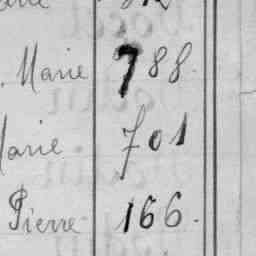 Marie 788.
Marie 701
Pierre 166.